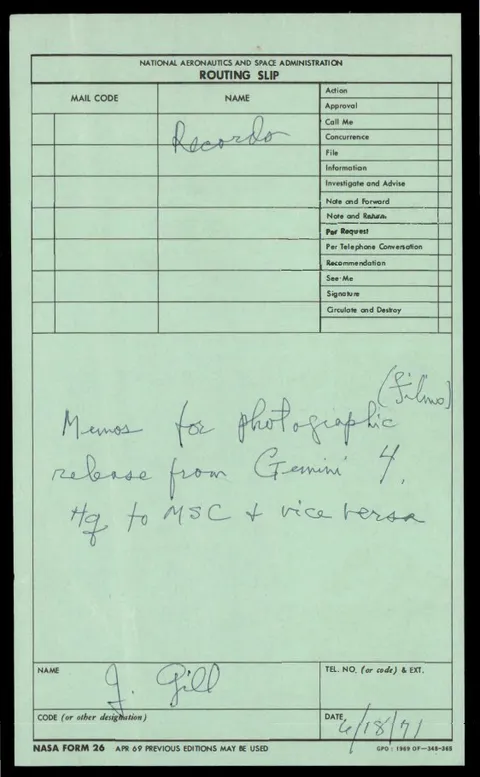 NATIONAL AERONAUTICS AND SPACE ADMINISTRATION
ROUTING SLIP
MAIL CODE
NAME
Action
Approval
Call Me
Concurrence
File
Information
Investigate and Advise
Note and Forward
Note and Return
Per Request
Per Telephone Conversation
Recommendation
See Me
Signature
Circulate and Destroy
Records
(films)
Memos for photographic
release from Gemini 4,
Hq to MSC + vice versa
NAME
J. Gill
TEL. NO. (or code) & EXT.
CODE (or other designation)
DATE
6/18/71
NASA FORM 26 APR 69 PREVIOUS EDITIONS MAY BE USED
GPO : 1969 OF—348-368